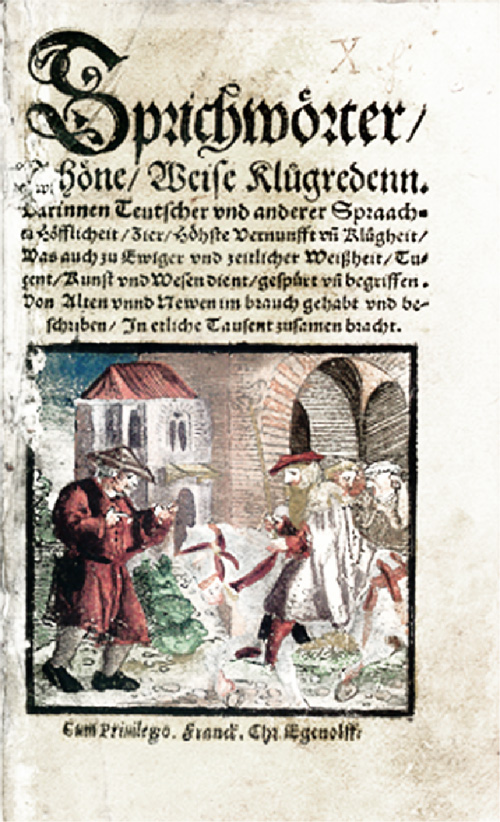 X
Sprichwörter/
Schöne/ Weise Klůgredenn.
Darinnen Teutscher vnd anderer Spraach-
en Höfflicheit/ Zier/ Höhste Vernunfft vñ Klůgheit/
Was auch zu Ewiger vnd zeitlicher Weißheit/ Tu-
gent/ Kunst vnd Wesen dient/ gespürt vñ begriffen.
Von Alten vnnd Newen im brauch gehabt vnd be-
schriben/ In etliche Tausent zusamen bracht.
Cum Priuilegio. Franck. Chr. Egenolff: